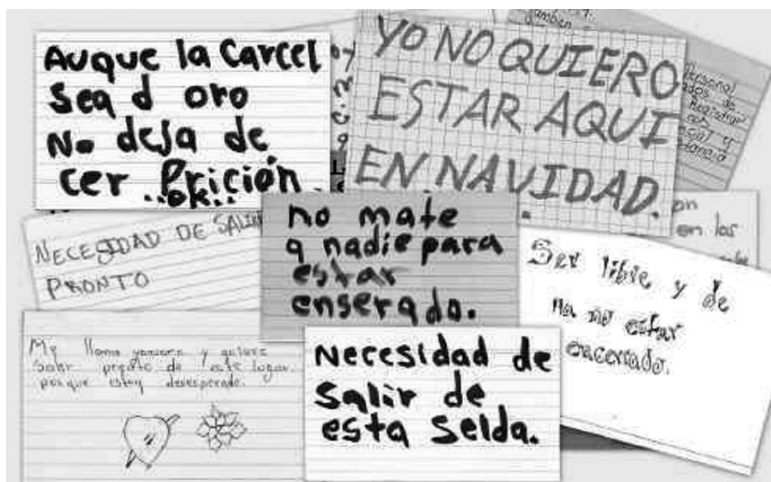 Auque la Carcel
Sea d oro
No deja de
cer Prición
..OK..
YO NO QUIERO
ESTAR AQUI
EN NAVIDAD.
NECESIDAD DE SALIR
PRONTO
no mate
a nadie para
estar
enserado.
Ser libre y de
ya no estar
encerrado.
Me llamo y quiero
Salir pronto de este lugar.
porque estoy desesperado.
Necesidad de
Salir de
esta Selda.
Personal
Registrar
en los